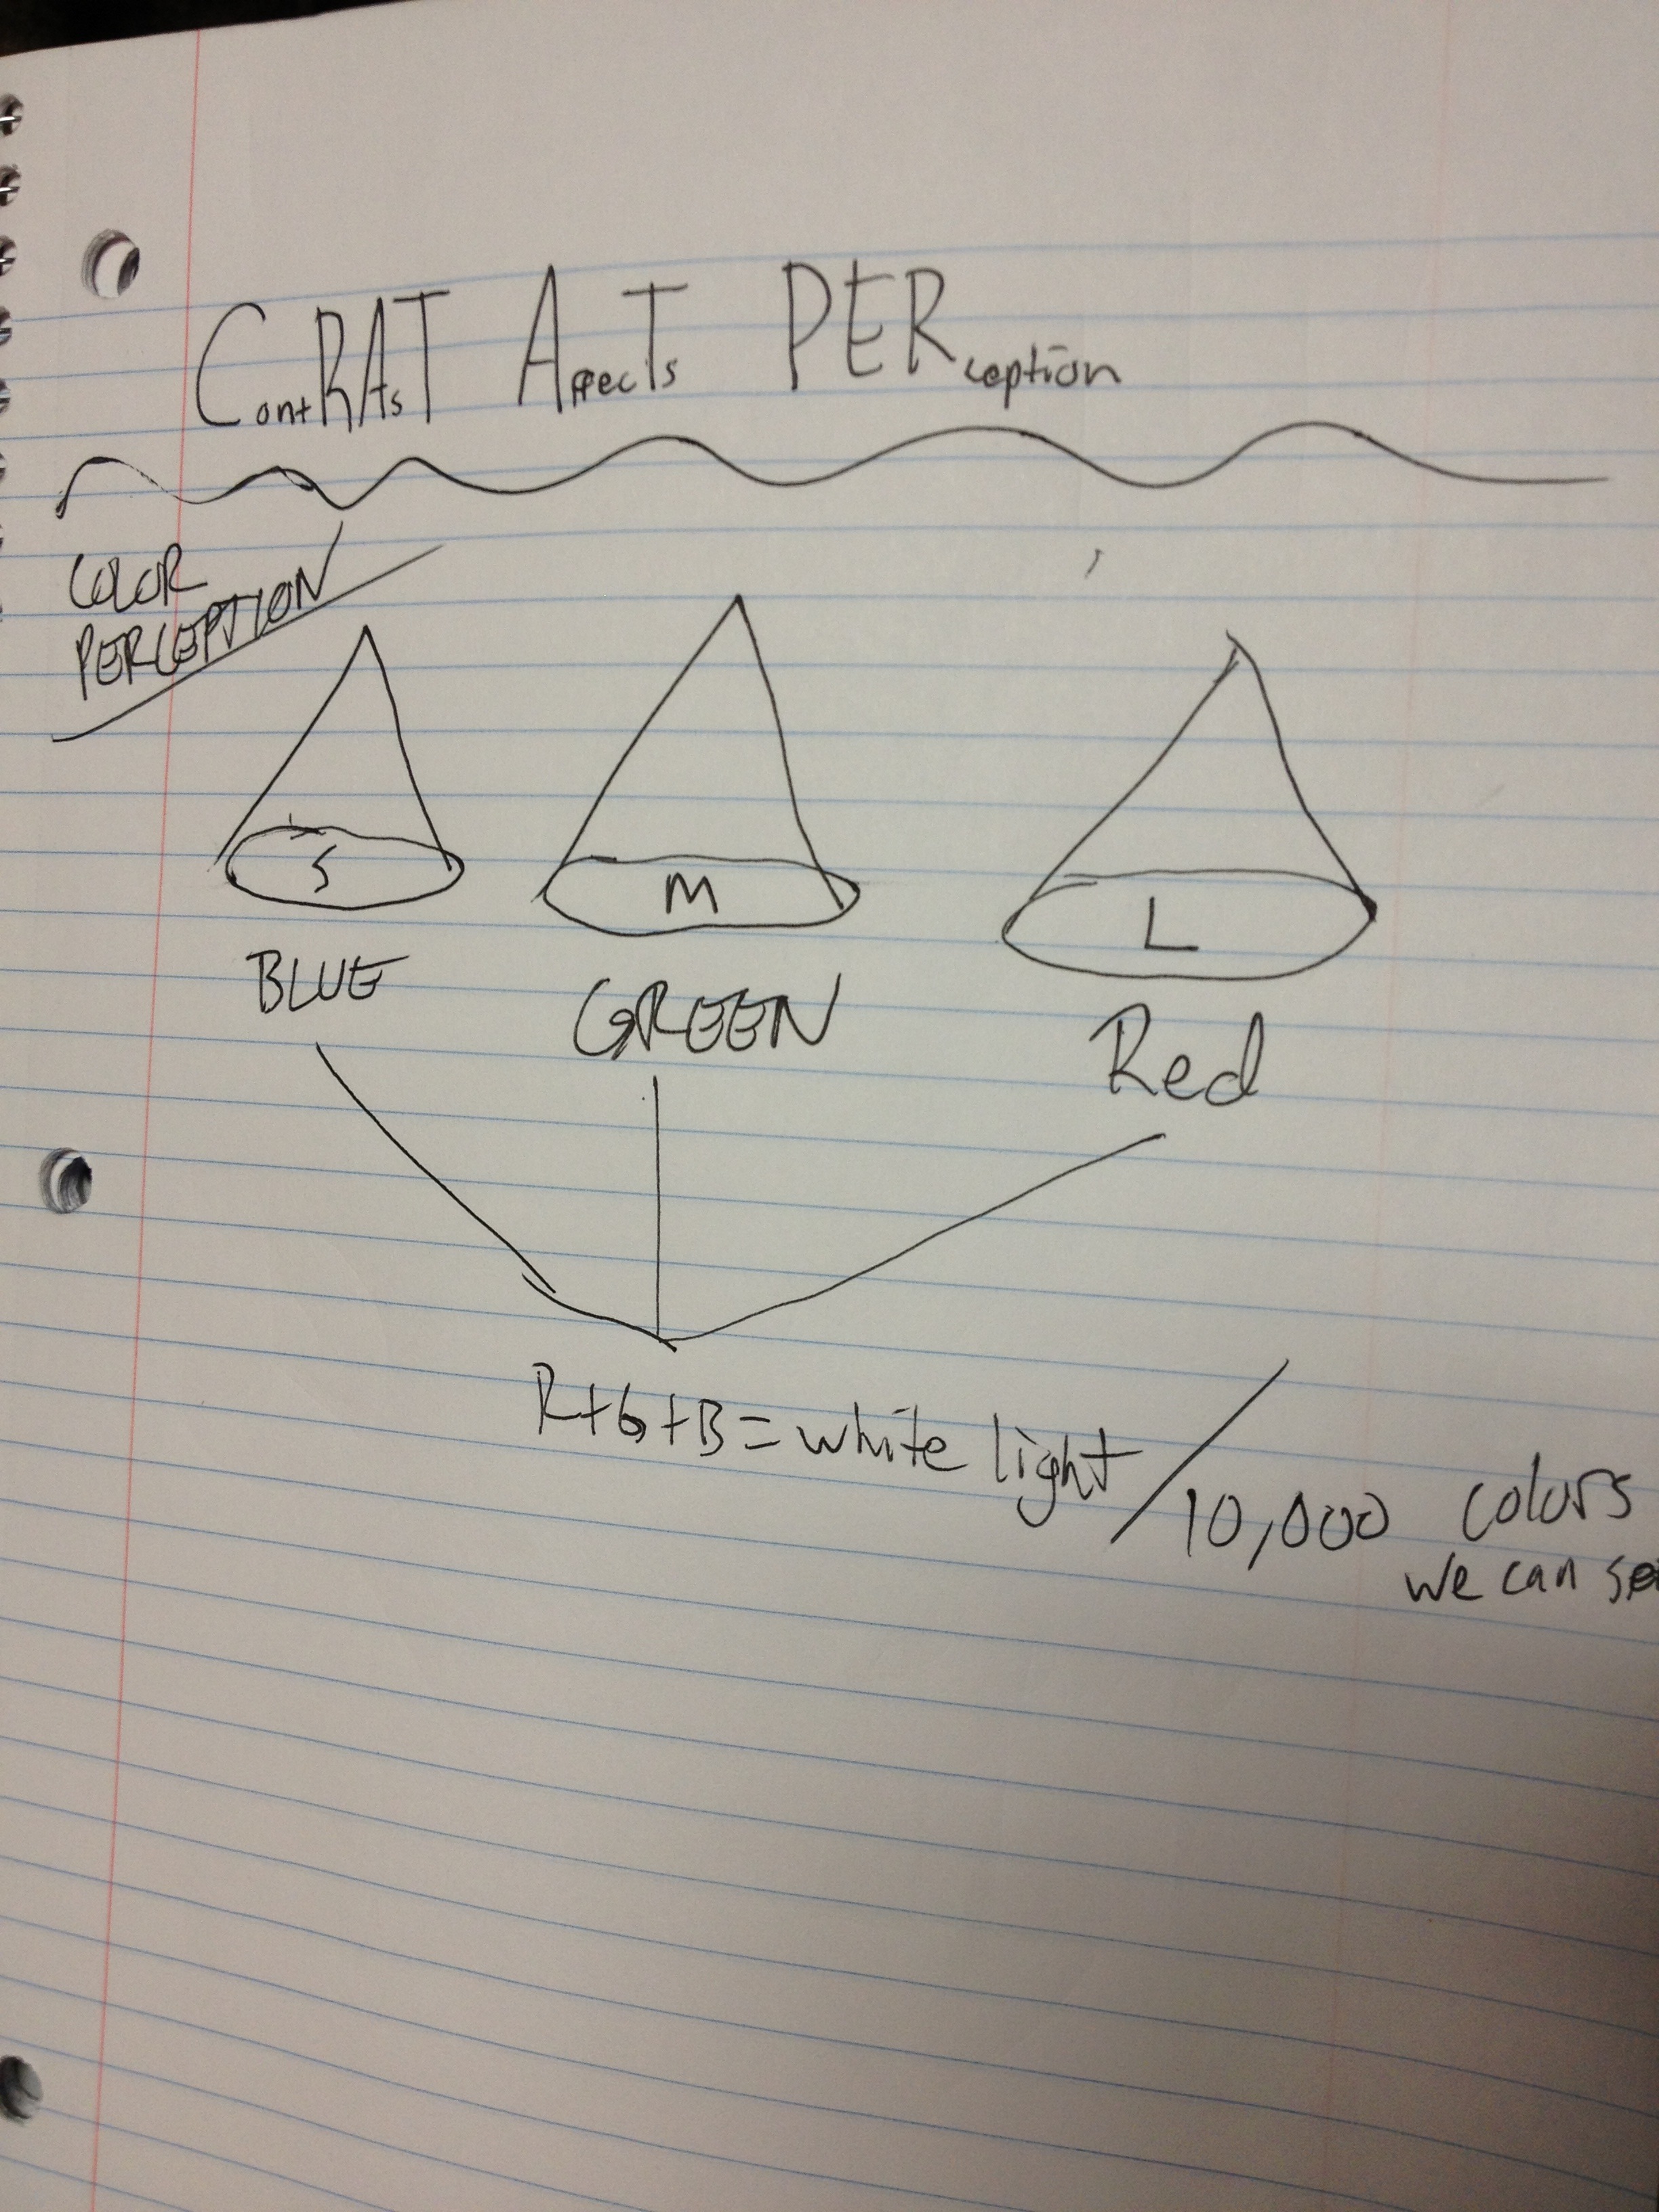 ContRAsT AffecTs PERception
COLOR
PERCEPTION
S M L
BLUE GREEN Red
R+G+B=white light / 10,000 colors
we can see